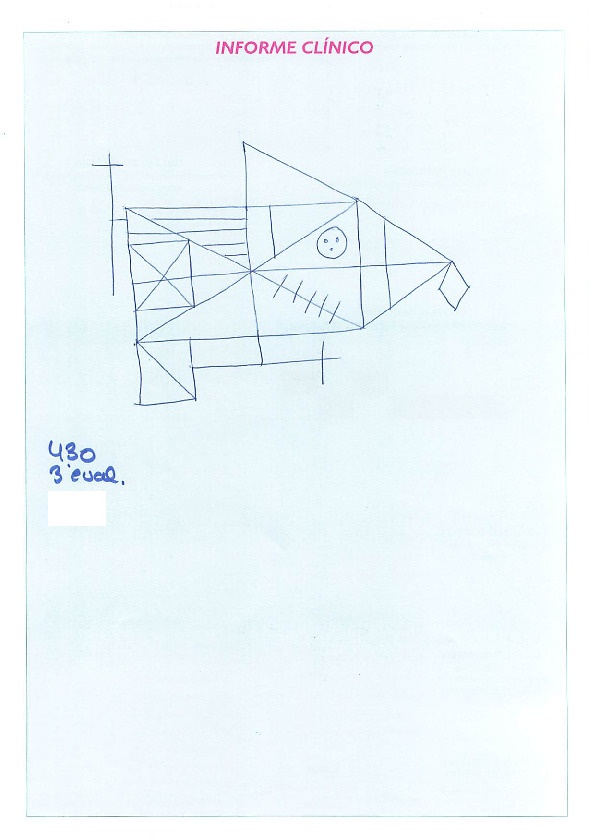 INFORME CLÍNICO
430
3ª eval.